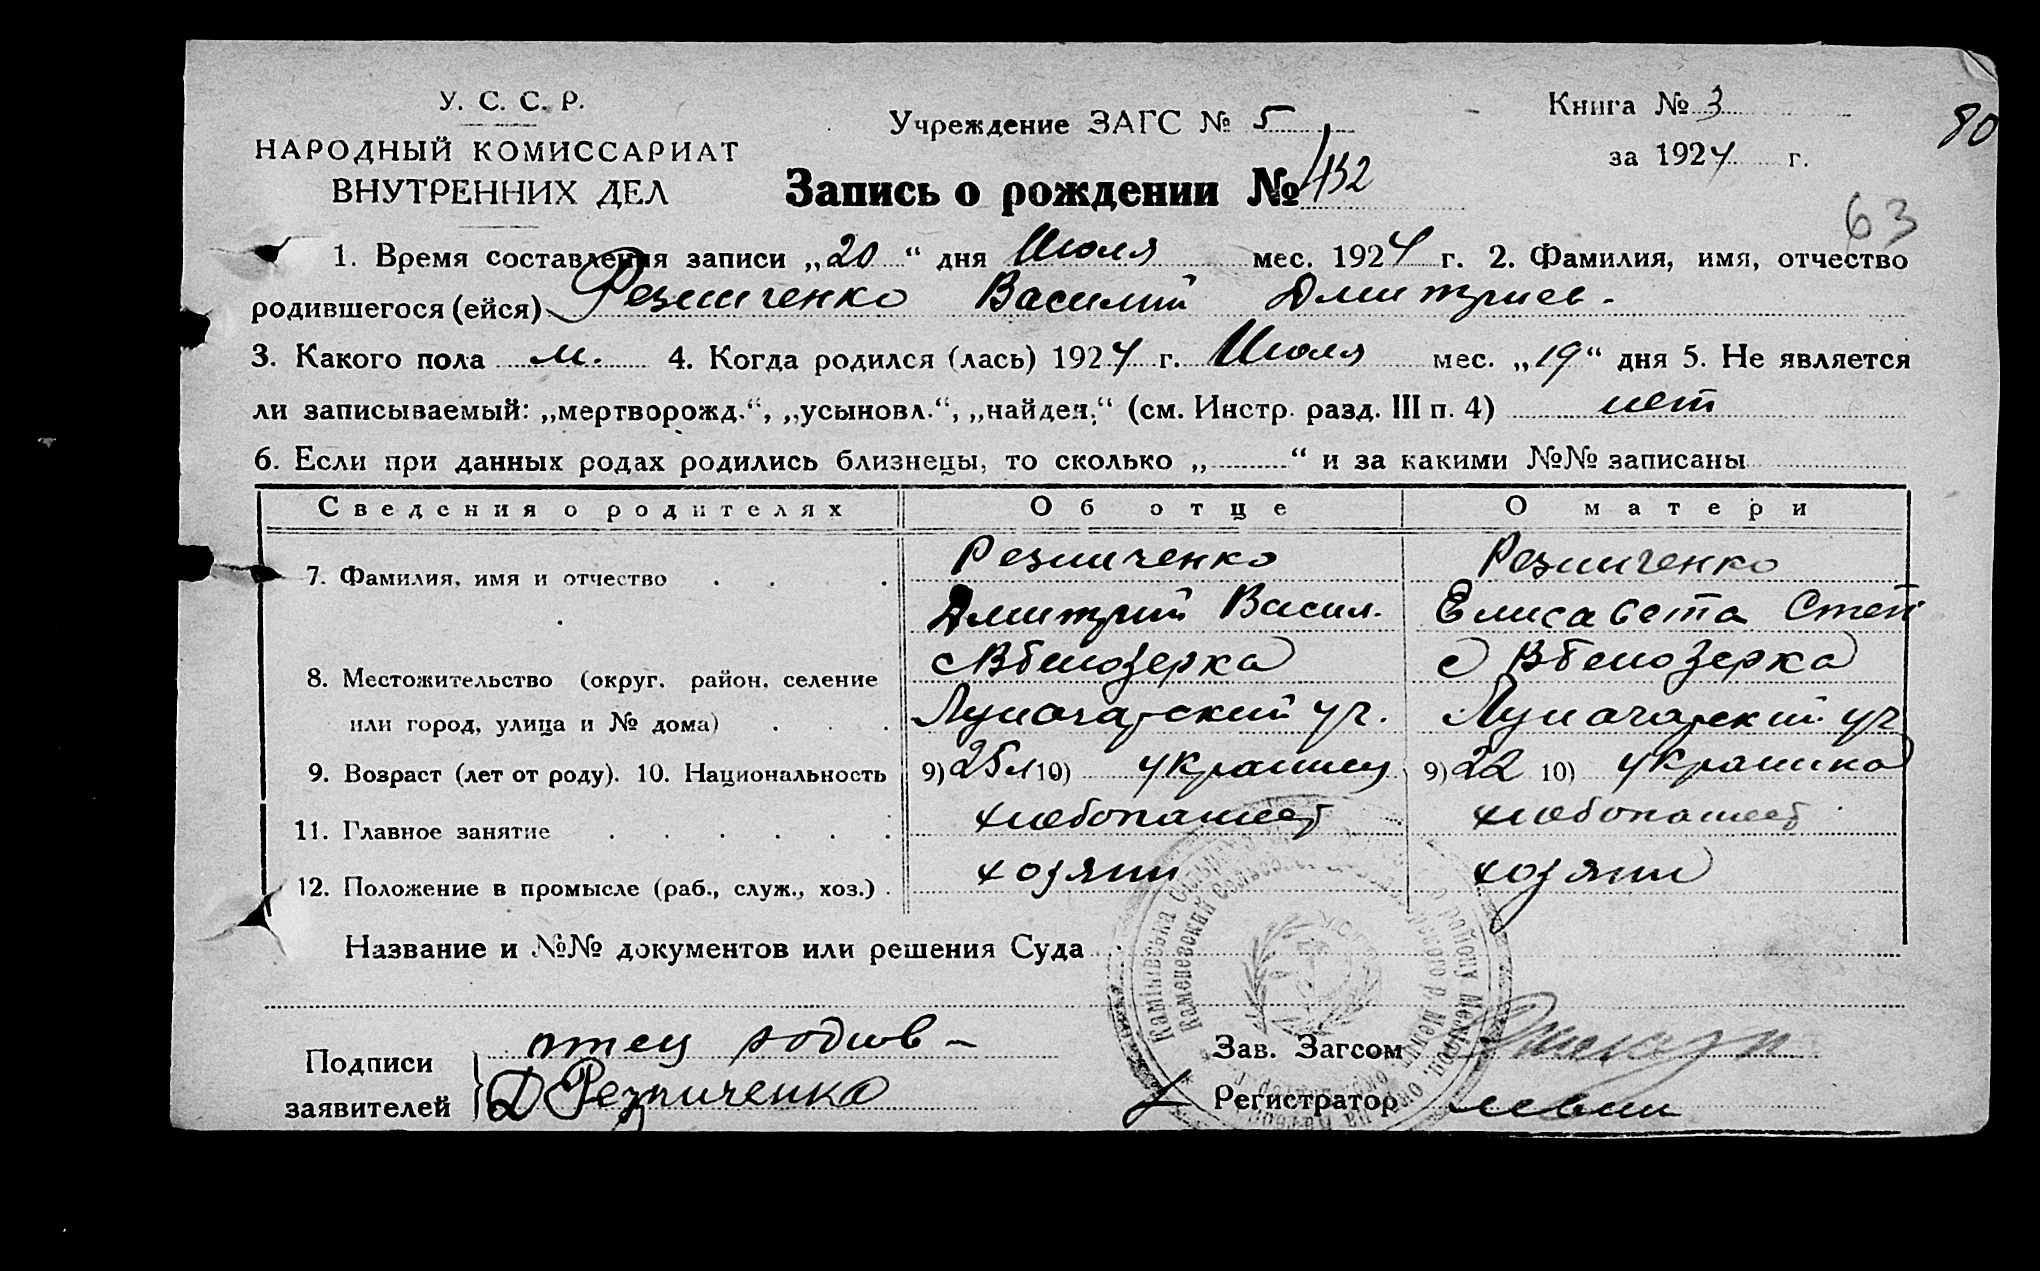 У. С. С. Р.
НАРОДНЫЙ КОМИССАРИАТ
ВНУТРЕННИХ ДЕЛ
Учреждение ЗАГС № 5
Запись о рождении № 432
Книга № 3
за 1924 г.
80
63
1. Время составления записи „20“ дня Июля мес. 1924 г. 2. Фамилия, имя, отчество
родившегося (ейся) Резниченко Василий Дмитриев.
3. Какого пола м. 4. Когда родился (лась) 1924 г. Июля мес. „19“ дня 5. Не является
ли записываемый: „мертворожд.“, „усыновл.“, „найден.“ (см. Инстр. разд. III п. 4) нет
6. Если при данных родах родились близнецы, то сколько „ “ и за какими №№ записаны
Сведения о родителях Об отце О матери
7. Фамилия, имя и отчество Резниченко Резниченко
Дмитрий Васил. Елисавета Степ
8. Местожительство (округ, район, селение с Вбелозерка с Вбелозерка
или город, улица и № дома) Луначарский уч. Луначарский уч
9. Возраст (лет от роду). 10. Национальность 9) 25 л 10) украинец 9) 22 10) украинка
11. Главное занятие хлебопашец хлебопашец
12. Положение в промысле (раб., служ., хоз.) хозяин хозяин
Название и №№ документов или решения Суда
Подписи
заявителей
отец
Д Резниченко
Зав. Загсом
Регистратор